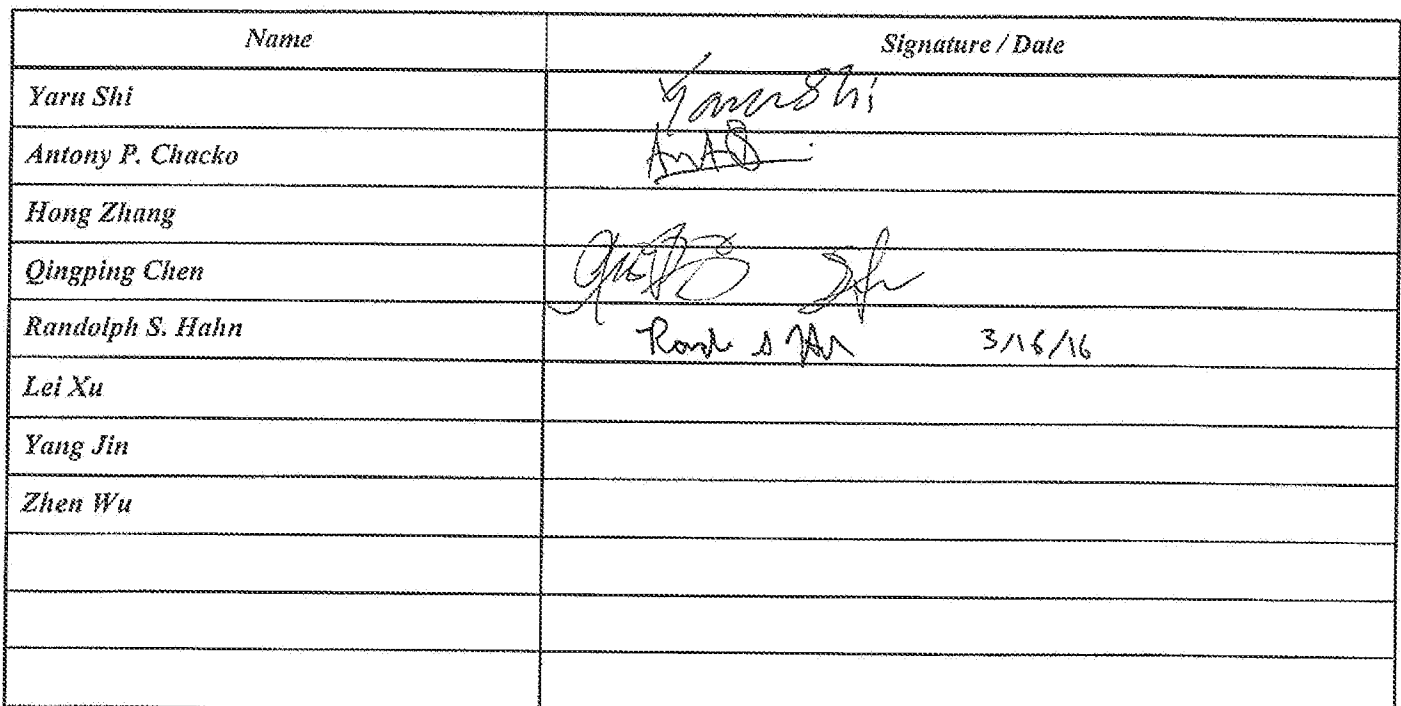 Name Signature / Date
Yaru Shi Yaru Shi
Antony P. Chacko
Hong Zhang
Qingping Chen
Randolph S. Hahn 3/16/16
Lei Xu
Yang Jin
Zhen Wu